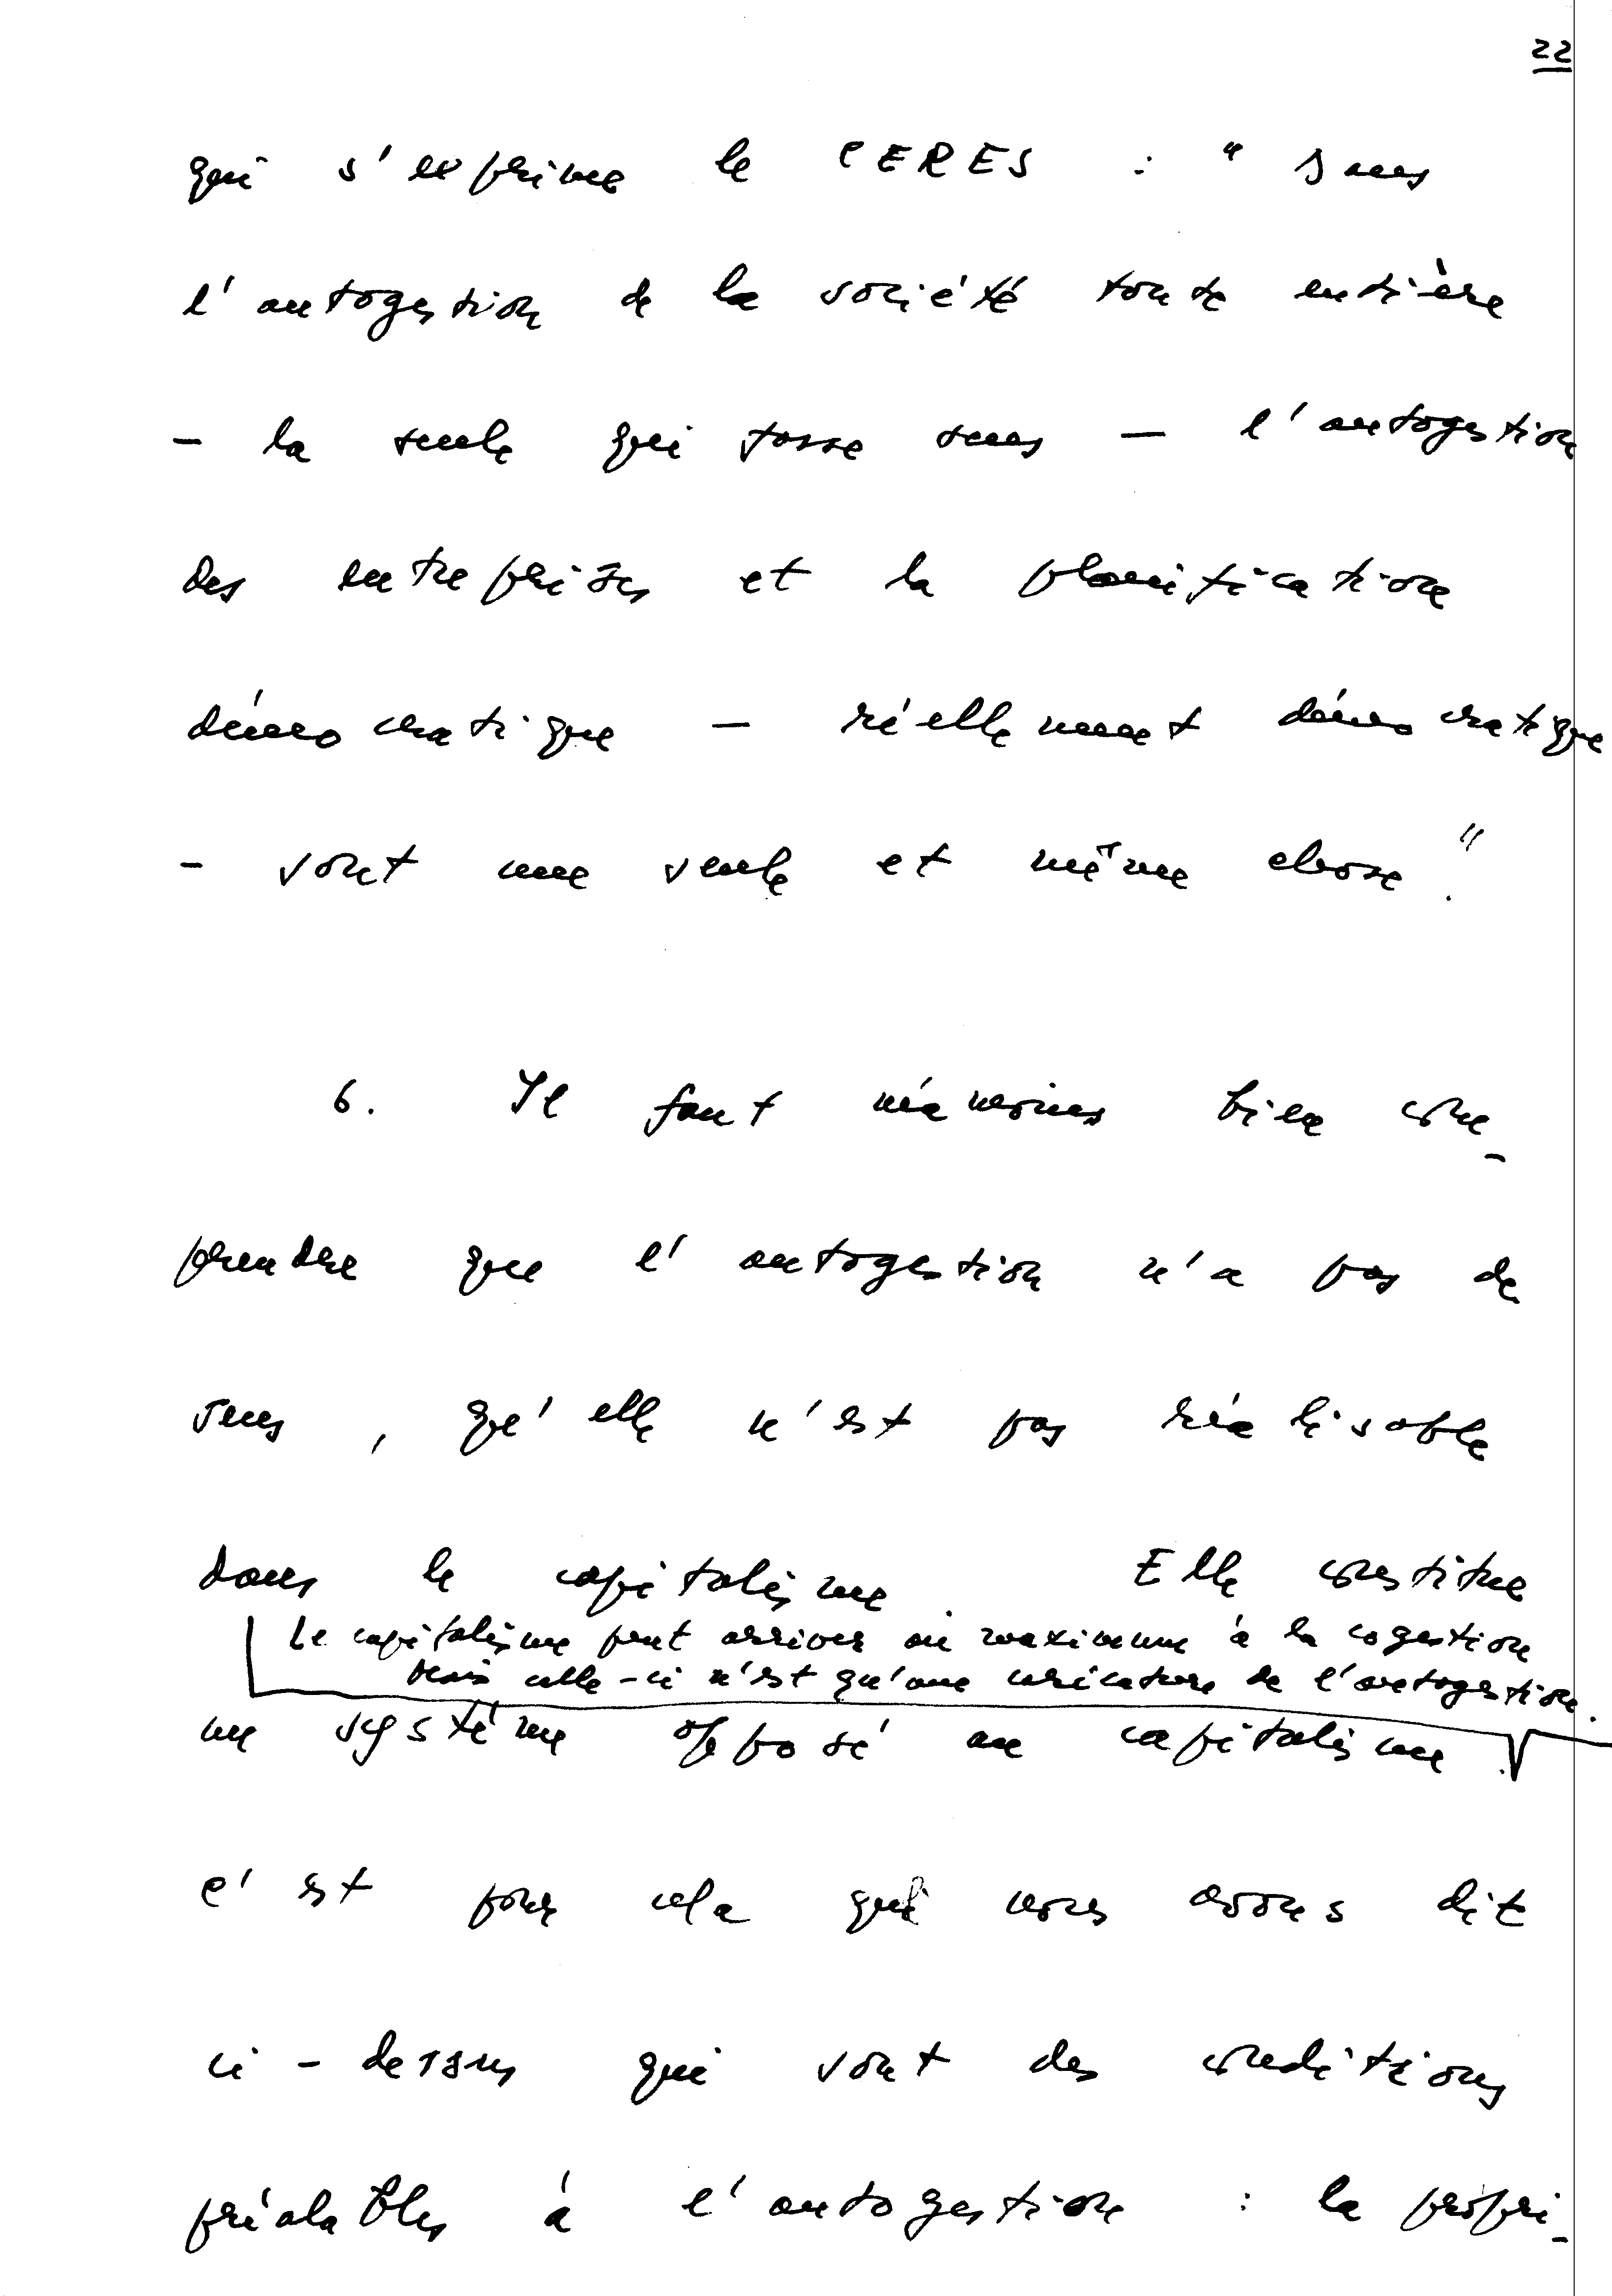 22
qui s'exprime le CERES : " Dans
l'autogestion de la société toute entière
- la seule qui fasse sens - l'autogestion
des entreprises et la planification
démocratique - réellement démocratique
- sont une seule et même chose ".
6. Il faut néanmoins bien com-
prendre que l'autogestion n'a pas de
sens, qu'elle n'est pas réalisable
dans le capitalisme. Elle constitue
Le capitalisme peut arriver au maximum à la cogestion
Mais celle-ci n'est qu'une caricature de l'autogestion.
un système opposé au capitalisme.
C'est pour cela que nous avons dit
ci-dessus qui sont des conditions
préalables à l'autogestion : la propri-